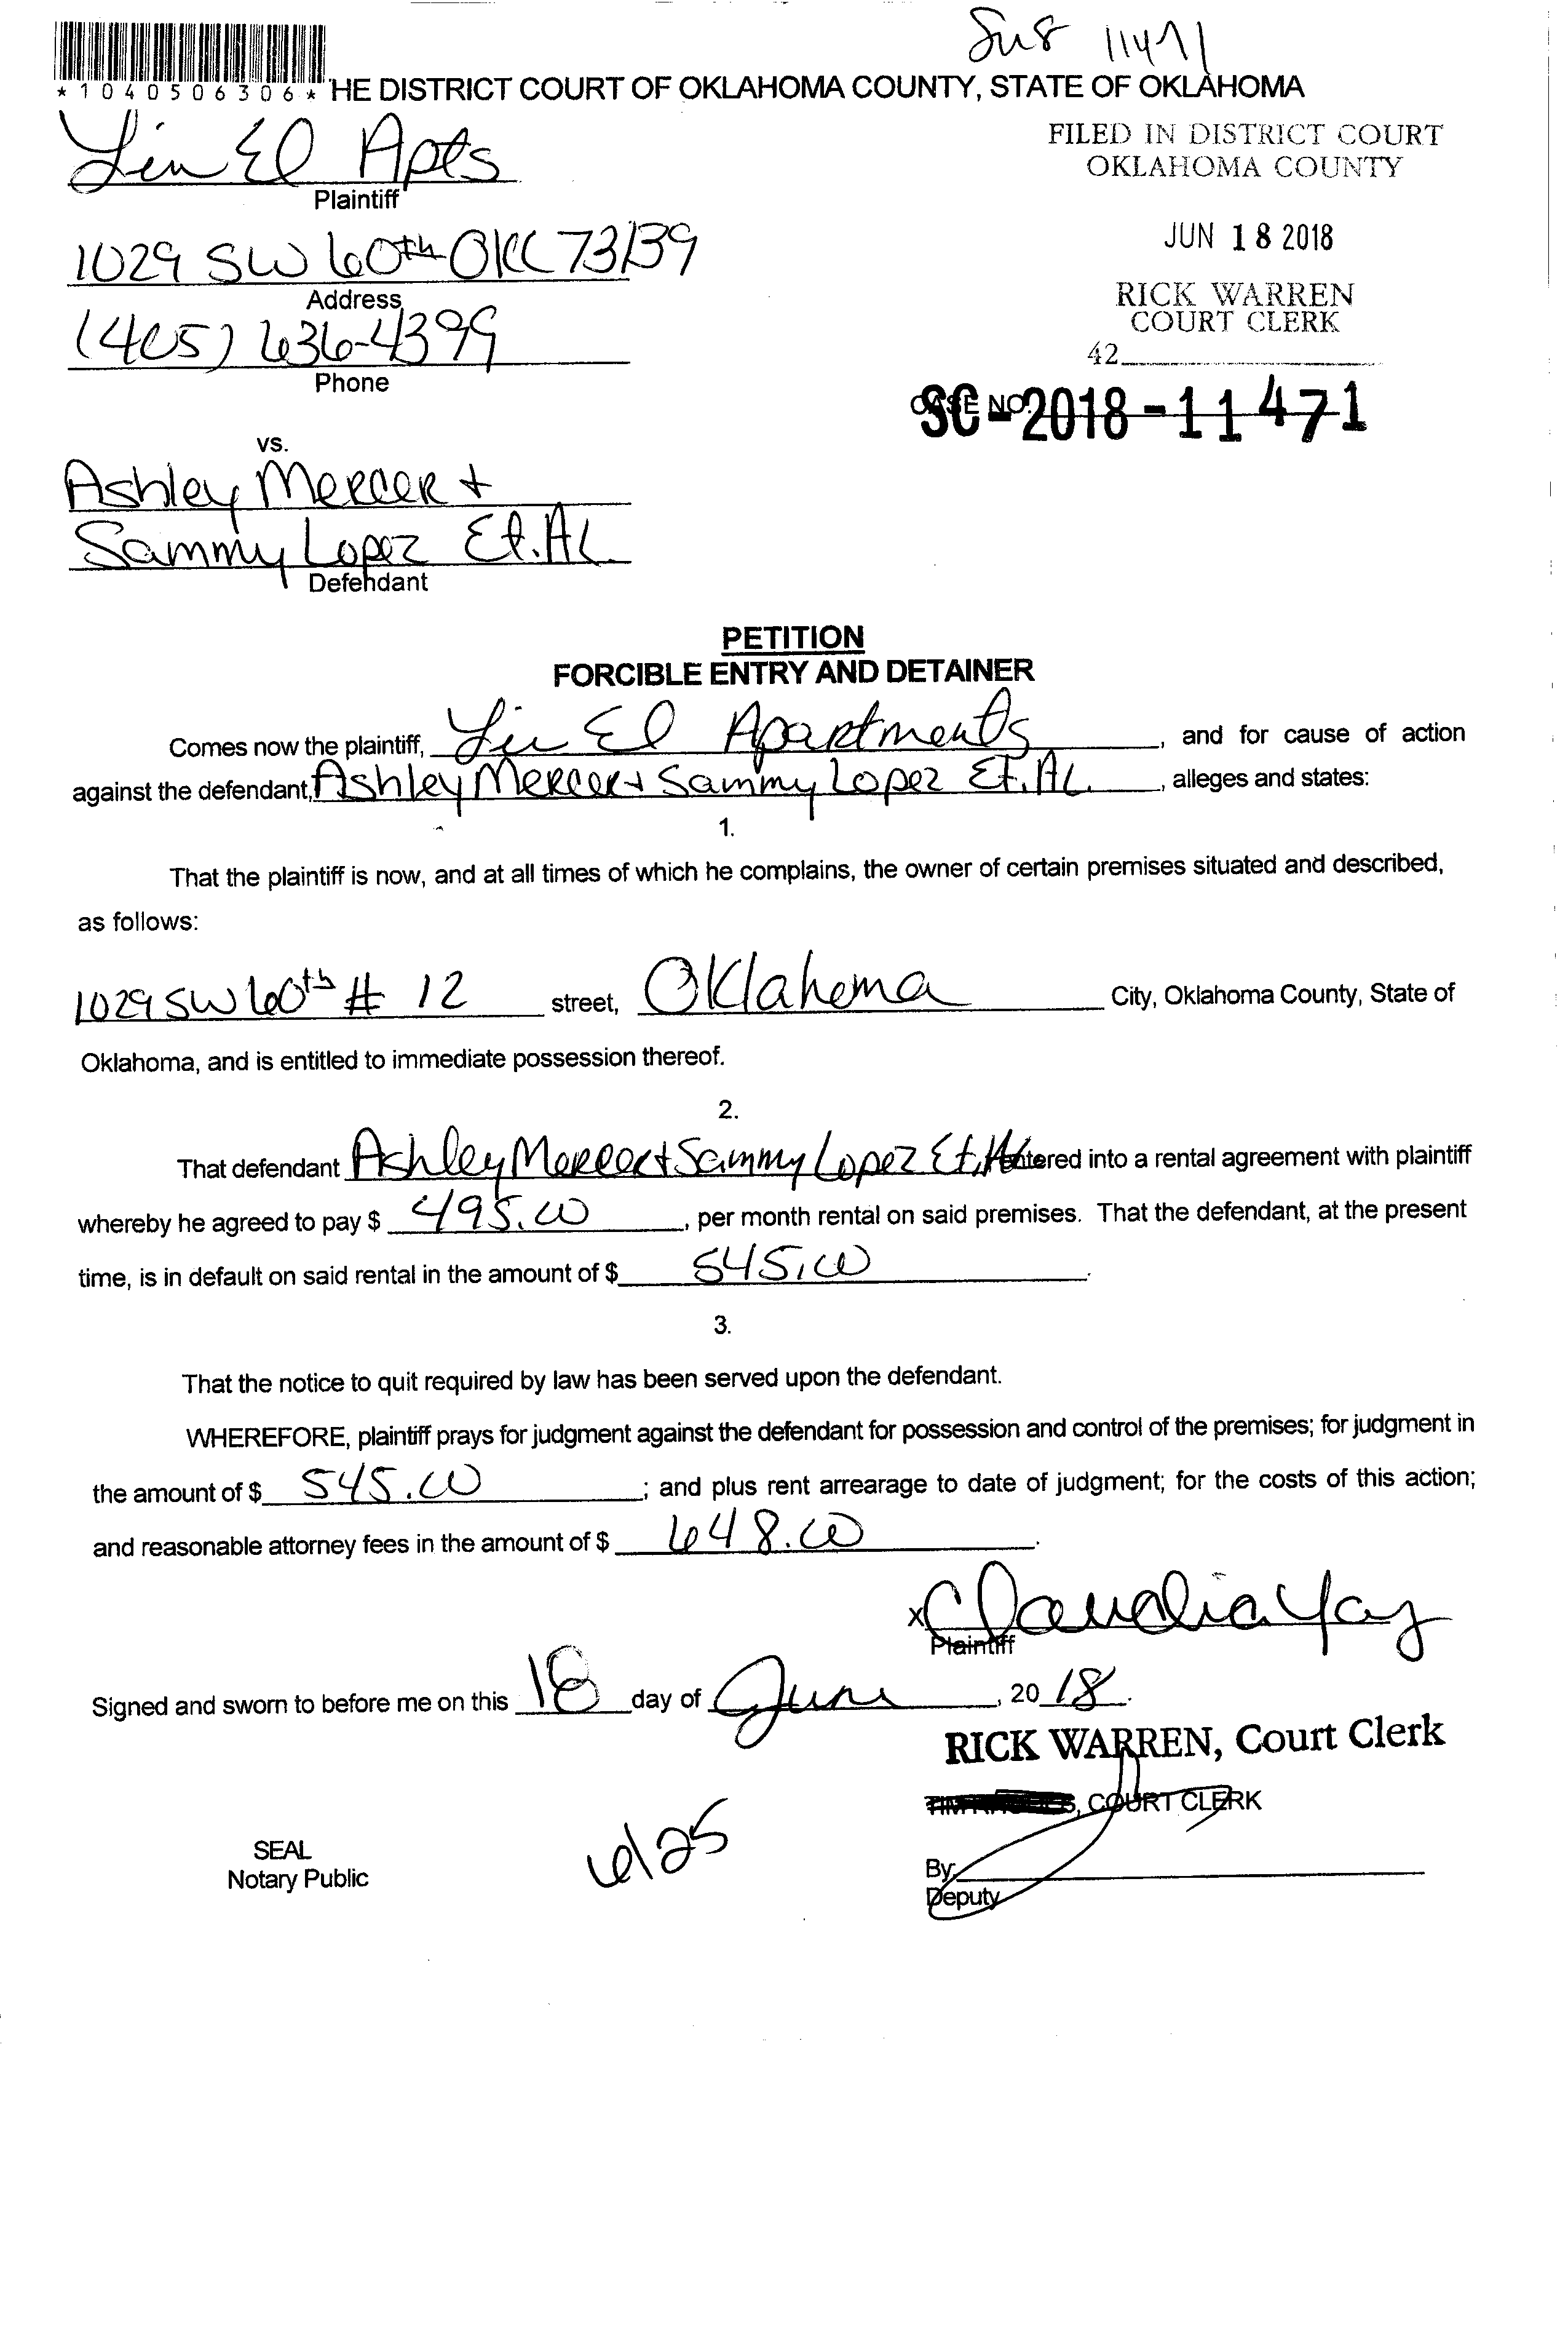 11471
*1040506306* HE DISTRICT COURT OF OKLAHOMA COUNTY, STATE OF OKLAHOMA
Lin El Apts
Plaintiff
FILED IN DISTRICT COURT
OKLAHOMA COUNTY
1029 SW 60th OKC 73139
Address
JUN 18 2018
(405) 636-4399
Phone
RICK WARREN
COURT CLERK
42
CASE NO.
SC-2018-11471
vs.
Ashley Mercer +
Sammy Lopez Et.AL.
Defendant
PETITION
FORCIBLE ENTRY AND DETAINER
Comes now the plaintiff, Lin El Apartments, and for cause of action
against the defendant, Ashley Mercer + Sammy Lopez Et.AL., alleges and states:
1.
That the plaintiff is now, and at all times of which he complains, the owner of certain premises situated and described,
as follows:
1029 SW 60th # 12 street, Oklahoma City, Oklahoma County, State of
Oklahoma, and is entitled to immediate possession thereof.
2.
That defendant Ashley Mercer + Sammy Lopez Et.AL entered into a rental agreement with plaintiff
whereby he agreed to pay $ 495.00, per month rental on said premises. That the defendant, at the present
time, is in default on said rental in the amount of $ 545.00.
3.
That the notice to quit required by law has been served upon the defendant.
WHEREFORE, plaintiff prays for judgment against the defendant for possession and control of the premises; for judgment in
the amount of $ 545.00; and plus rent arrearage to date of judgment; for the costs of this action;
and reasonable attorney fees in the amount of $ 648.00.
X Claudia Yay
Plaintiff
Signed and sworn to before me on this 18 day of June, 2018.
RICK WARREN, Court Clerk
, COURT CLERK
SEAL
Notary Public
6/25
By:
Deputy